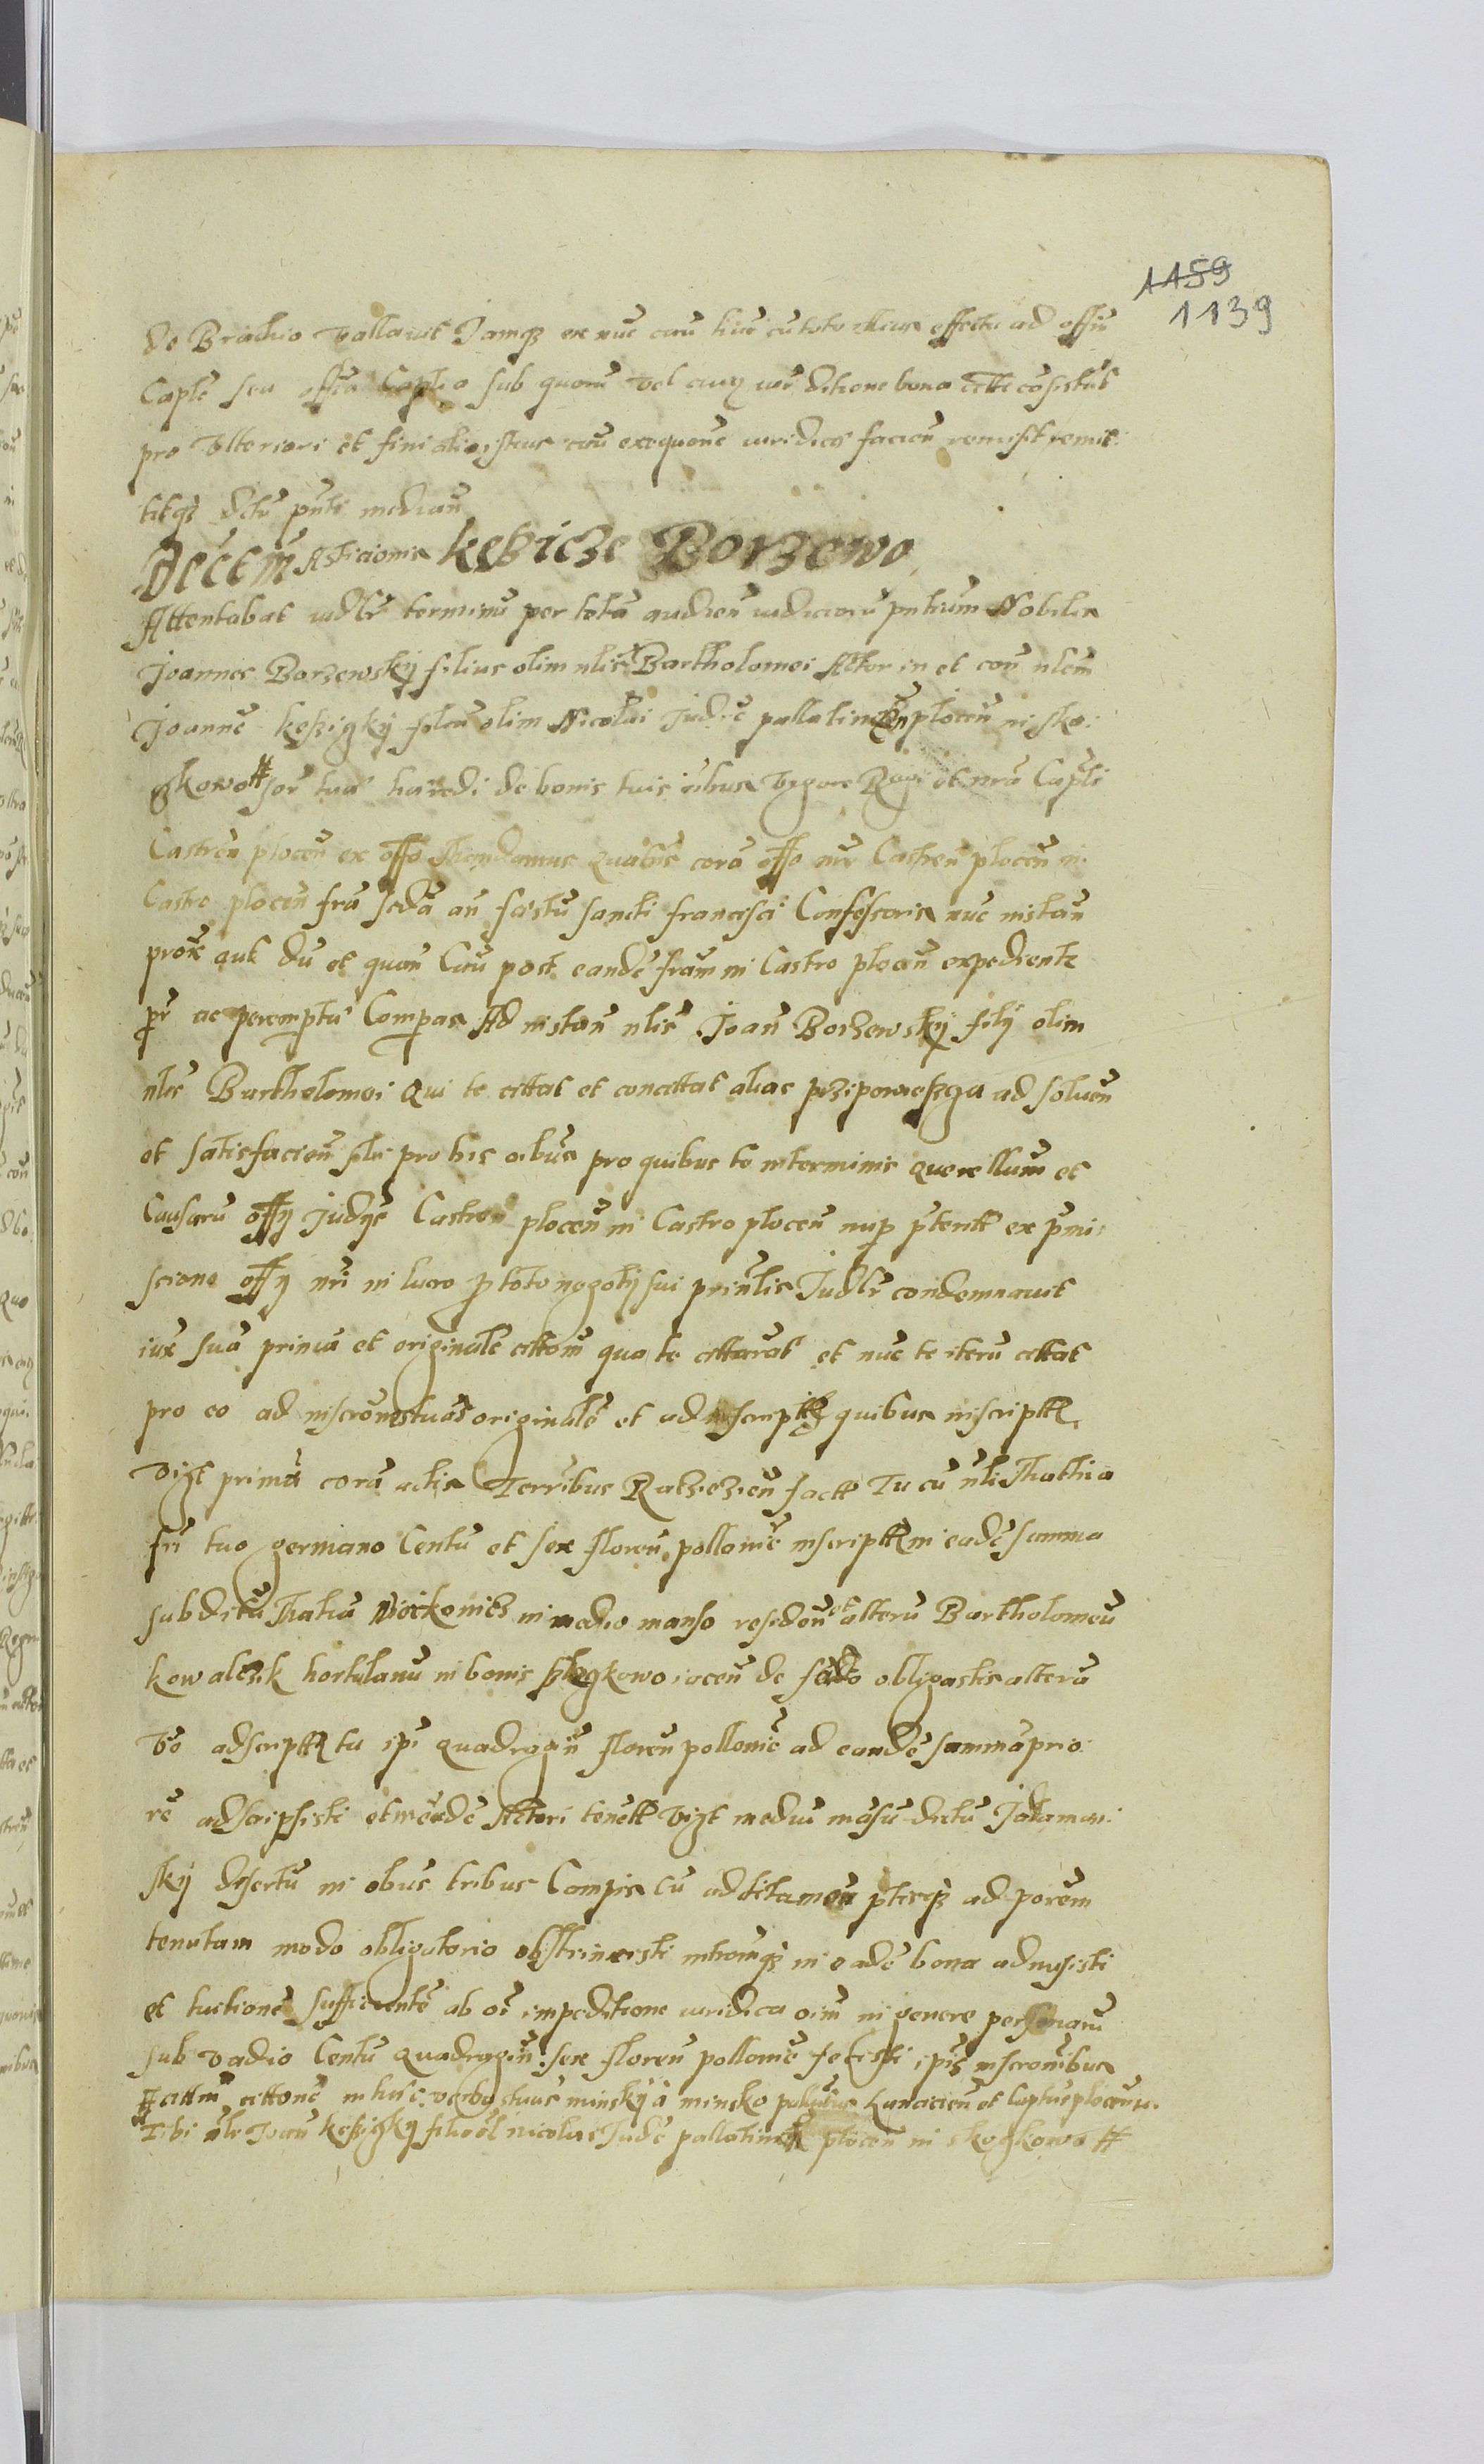 1159
1139
de Brachio vallavit Jamq3 ex nuc cau huc cu toto illius effectu ad offiu
Caple seu offia Caplia sub quoru vel cuig iurisditione bona citte cosistut
pro Vlteriori et fini alio istius cau exequone iuridica facien remisit remit:
titq3 detu pnti median
Decem Asticionis kęszicze Borzewo
Attentabat iudlr terminu per tota audien iudicioru pntium Nobilis
Joannes Borzewskÿ filius olim nlis Bartholomei Actor in et con nlem
Joanne kęszigkÿ filiu olim Nicolai Judic pallatin plocen in sko:
gkowo # sor tua haeredi de bonis tuis oibus vigore Regi et nra Capli
Castren plocen ex offo Mandamus quatus cora offo nro Castren plocen in
Castro plocen fra scda an festu sancti francisci Confessoris nuc instan
prox aut du et quan Cau post eande fram in Castro plocen expedient
pr ac peremptu Compas Ad instan nlis Joan Borzewskÿ filÿ olim
nlis Bartholomei qui te cittat et concittat alias prziposwszga ad soluen
et satisfacien sibi pro his oibus pro quibus te in terminis querellum et
Causaru offÿ Judÿs Castren plocen in Castro plocen nup ptent ex pmi:
scione offÿ nri in lucro p toto negotÿ sui prinlis Judlr condemnavit
iux sua prima et originale cittom qua te cittarat et nuc te iteru cittat
pro eo ad inscronestuas originale et ad inscript quibus inscript
vigt prima cora actis Terribus Raczczien fact Tu cu nli Mathia
fri tuo germano Centu et sex floren pollonic inscript in eade summa
subditu Mathia Nickonicz in medio manso residen et alteru Bartholomeu
kowalczik hortulanu in bonis skogkowo iacen de facto obligastis altera
vo adscript tu ipi quadragin floren pollonic ad eande summa prio:
re adscripsisti et in eade Actori tenett vigt mediu masu dictu Jadamow:
skÿ desertu in obus tribus Campis cu additamen ptisq3 ad porem
tenutam modo obligatorio obstrinxisti introinq3 in eade bona admisisti
et tuitione sufficiente ab oi impeditione iuridica oim in genere personaru
sub vadio Centu quadragin sex floren pollonic fecisti ipis inscronibus
# cittm cittone in huic verba stus minskÿ a minsko Lanaicien et Captus plocen
# Tibi nli Joan kęszigkÿ filio ol nicolai Judc pallatin plocen in skogkowo #